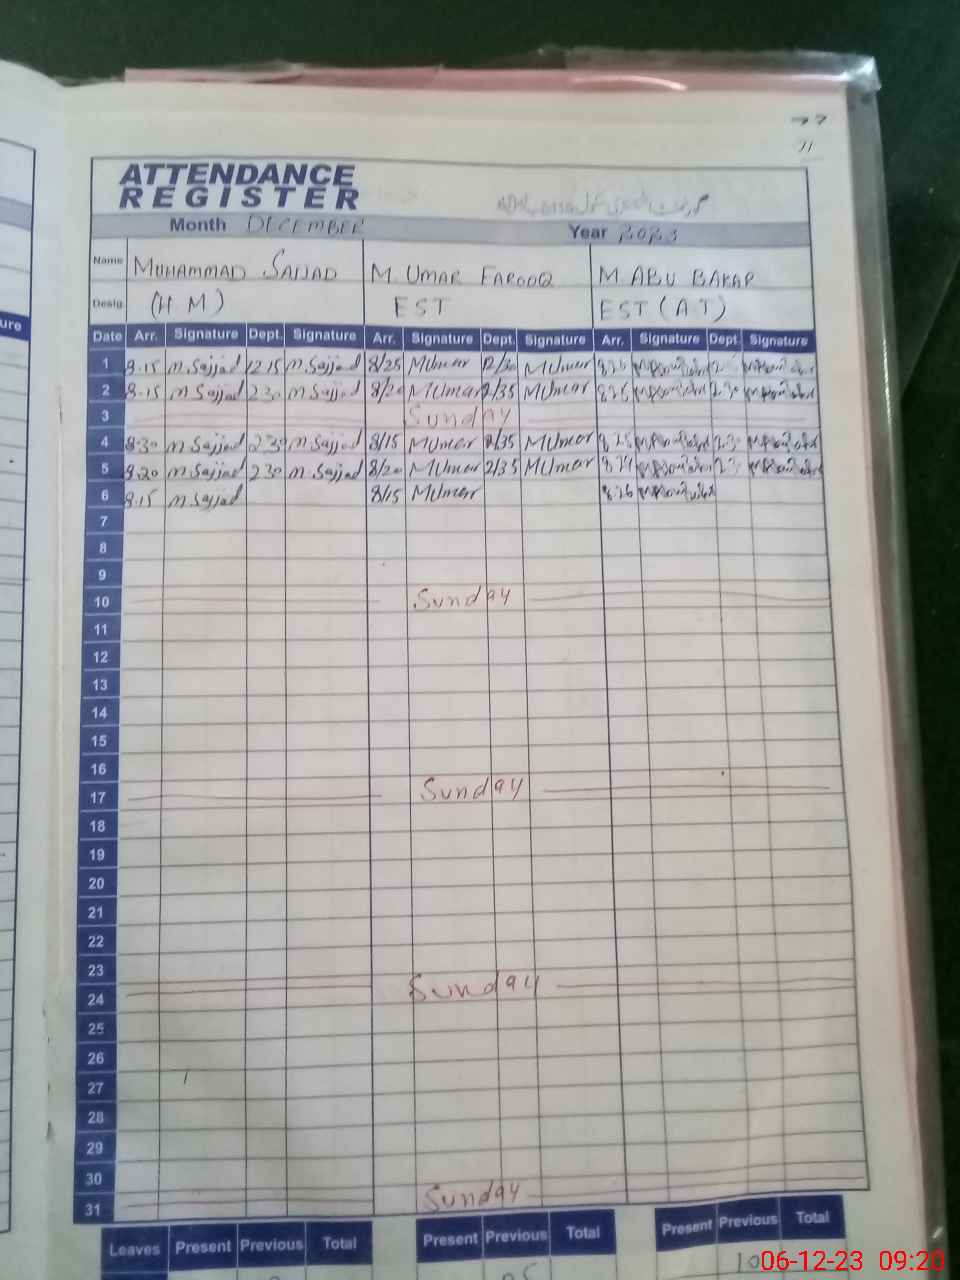 11
ATTENDANCE
REGISTER
Month DECEMBER Year 2023
Name MUHAMMAD SAJJAD M. UMAR FAROOQ M. ABU BAKAR
Desig. (H M) EST EST (A T)
Date Arr. Signature Dept. Signature Arr. Signature Dept. Signature Arr. Signature Dept. Signature
1 8.15 M Sajjad 12 15 M Sajjad 8/25 MUmar 12/30 MUmar
2 8.15 M Sajjad 2 30 M Sajjad 8/20 MUmar 2/35 MUmar
3 Sunday
4 8.30 M Sajjad 2 30 M Sajjad 8/15 MUmar 2/35 MUmar
5 8.20 M Sajjad 2 30 M Sajjad 8/20 MUmar 2/35 MUmar
6 8.15 M Sajjad 8/15 MUmar 8.26
7
8
9
10 Sunday
11
12
13
14
15
16
17 Sunday
18
19
20
21
22
23
24 Sunday
25
26
27
28
29
30
31 Sunday
Leaves Present Previous Total Present Previous Total Present Previous Total
06-12-23 09:20